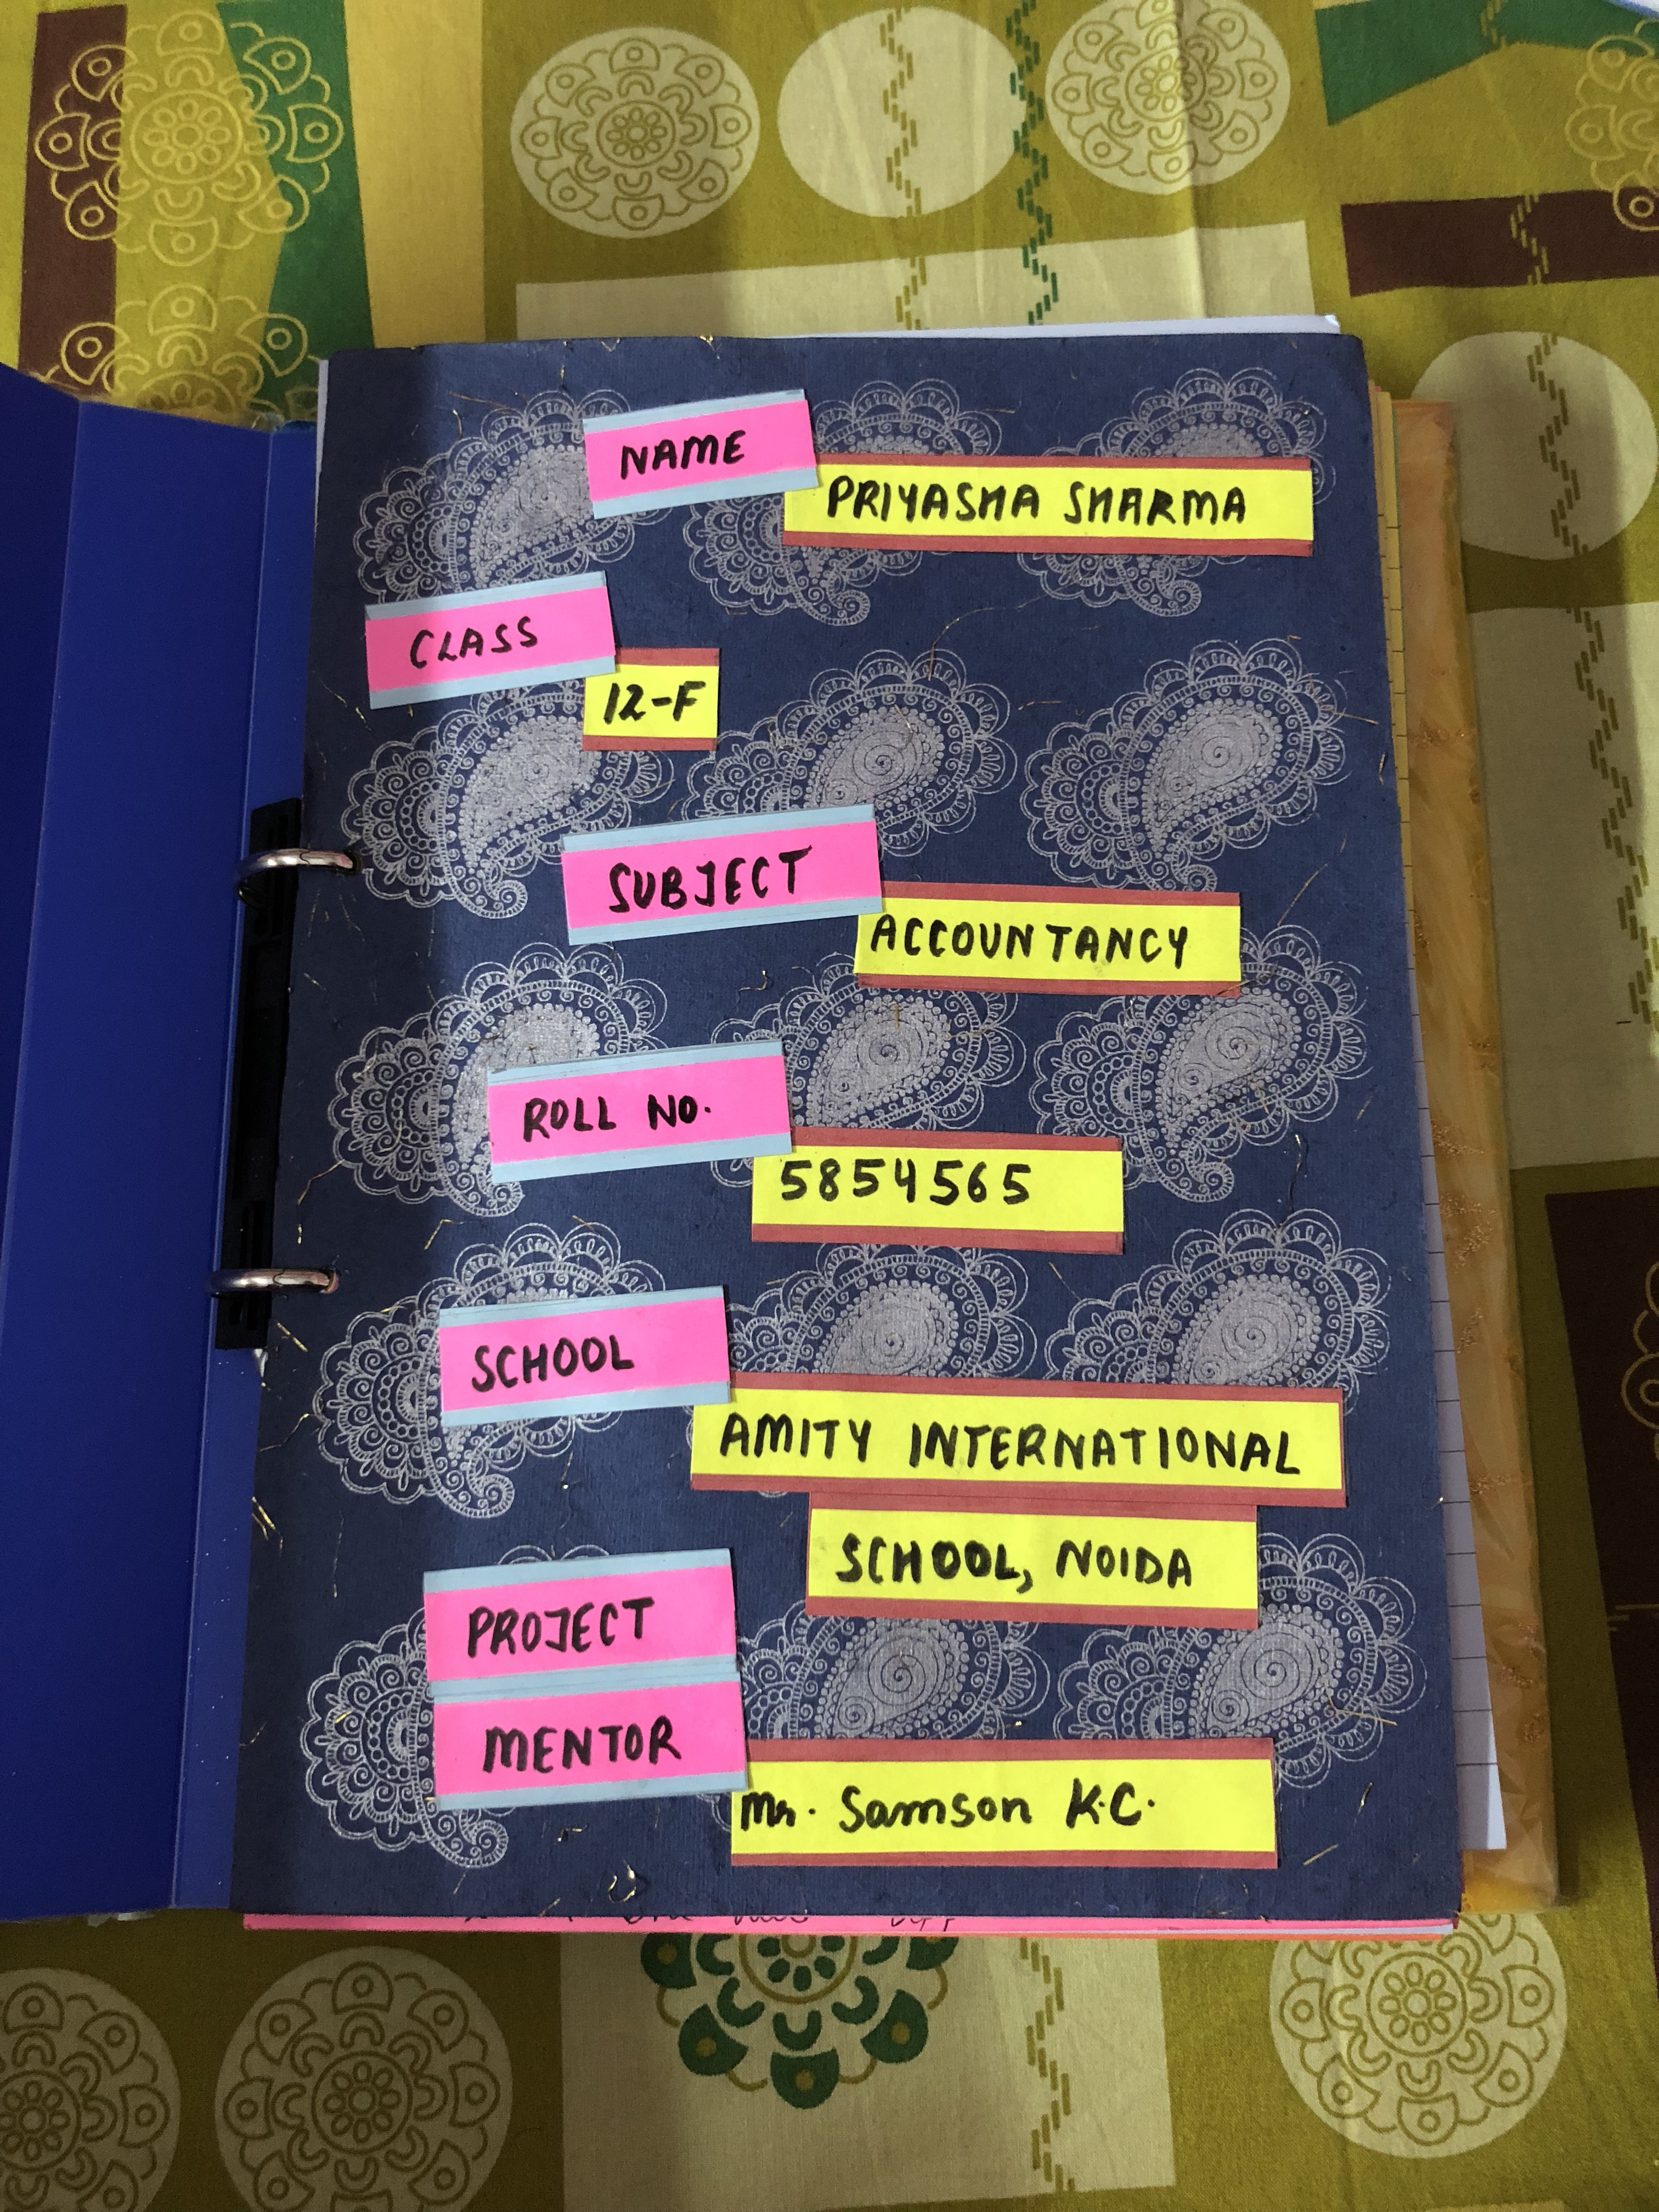 NAME
PRIYASHA SHARMA
CLASS
12-F
SUBJECT
ACCOUNTANCY
ROLL NO.
5854565
SCHOOL
AMITY INTERNATIONAL
SCHOOL, NOIDA
PROJECT
MENTOR
Mr. Samson K.C.